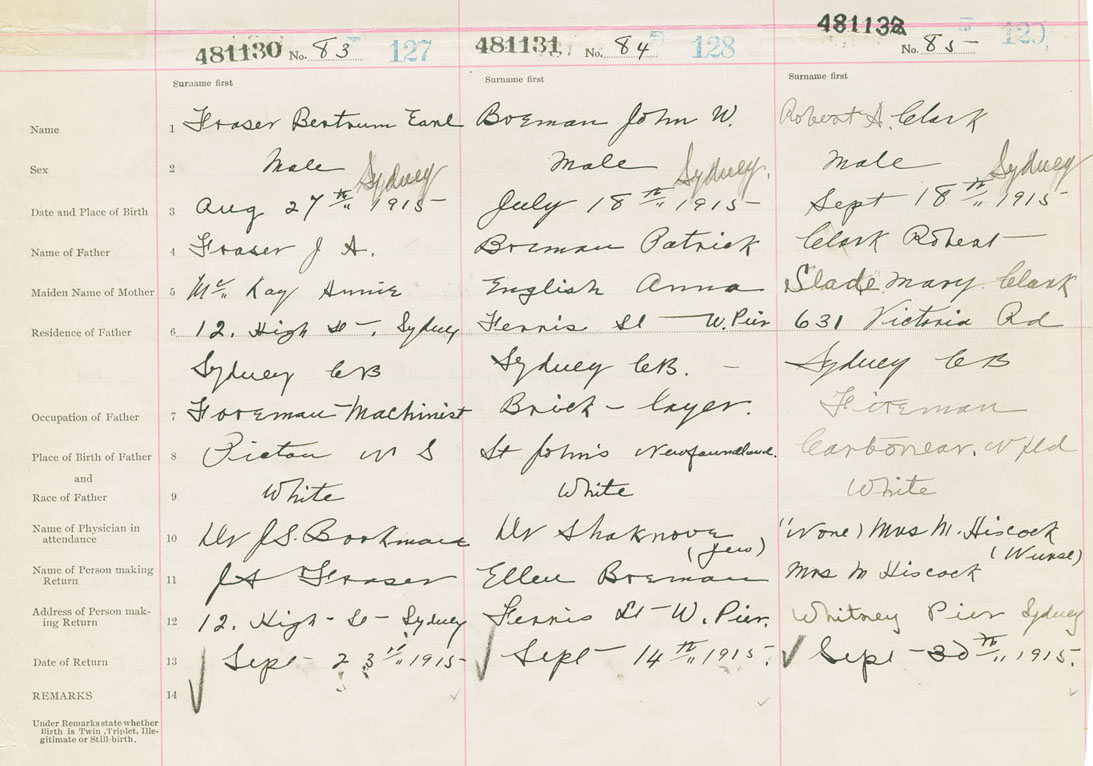 481130 No. 83 127 481131 No. 84 128 481132 No. 85 129
Surname first Surname first Surname first
Name 1 Fraser Bertrum Earl Boeman John W. Robert A. Clark
Sex 2 Male Male Male
Sydney Sydney. Sydney
Date and Place of Birth 3 Aug 27th 1915 July 18th 1915 Sept 18th 1915
Name of Father 4 Fraser J A. Boeman Patrick Clark Robert
Maiden Name of Mother 5 Mc Kay Annie English Anna Slade Mary Clark
Residence of Father 6 12. High St. Sydney Ferris St W. Pier 631 Victoria Rd
Sydney CB Sydney CB. Sydney CB
Occupation of Father 7 Foreman Machinist Brick-layer. Fireman
Place of Birth of Father 8 Pictou N S St John's Newfoundland. Carbonear. Nfld
and
Race of Father 9 White White White
Name of Physician in
attendance 10 Dr J.S. Dr Shaknove (Jew) "None) Mrs M. Hiscock
(Nurse)
Name of Person making
Return 11 JA Fraser Ellen Boeman Mrs M Hiscock
Address of Person mak-
ing Return 12 12. High-St-Sydney Ferris St-W. Pier. Whitney Pier Sydney
Date of Return 13 Sept 23 1915 Sept 14th 1915. Sept 30th 1915.
REMARKS 14
Under Remarks state whether
Birth is Twin, Triplet, Ille-
gitimate or Still-birth.